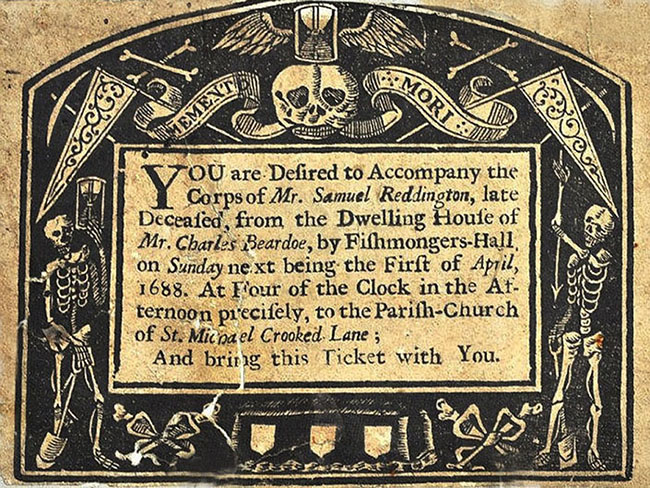 MEMENTO MORI
YOU are Deſired to Accompany the
Corps of Mr. Samuel Reddington, late
Deceaſed, from the Dwelling Houſe of
Mr. Charles Beardoe, by Fiſhmongers-Hall,
on Sunday next being the Firſt of April,
1688. At Four of the Clock in the Af-
ternoon preciſely, to the Pariſh-Church
of St. Michael Crooked Lane;
And bring this Ticket with You.